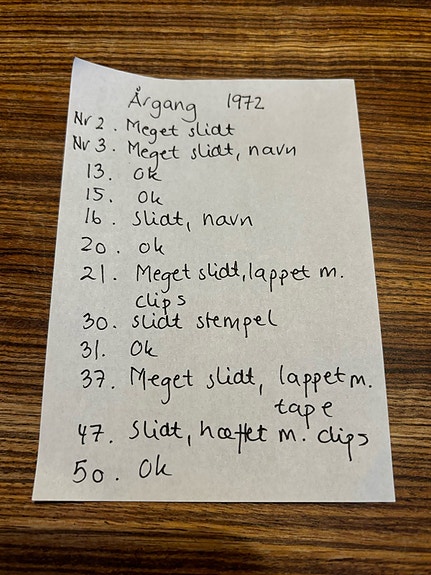 Årgang 1972
Nr 2. Meget slidt
Nr 3. Meget slidt, navn
13. Ok
15. Ok
16. Slidt, navn
20. ok
21. Meget slidt, lappet m.
clips
30. slidt stempel
31. Ok
37. Meget slidt, lappet m.
tape
47. Slidt, hæftet m. clips
50. Ok